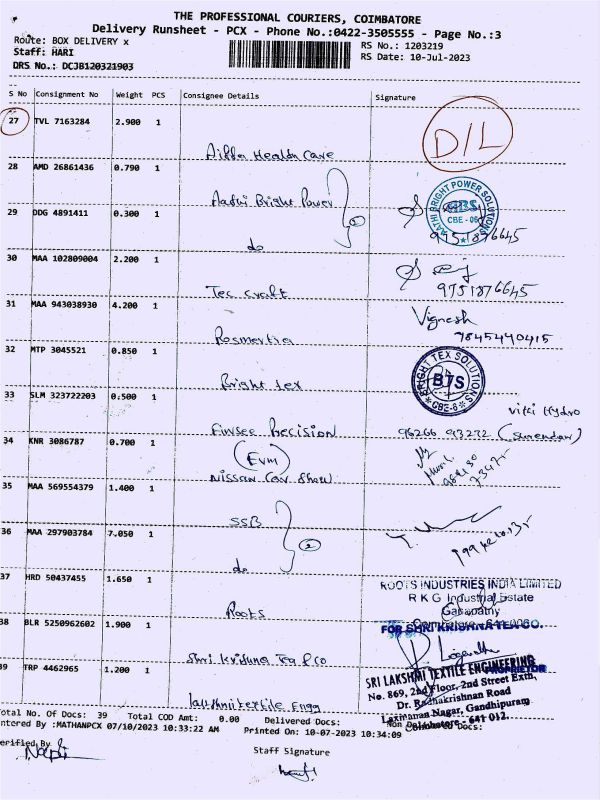 THE PROFESSIONAL COURIERS, COIMBATORE
Delivery Runsheet - PCX - Phone No.:0422-3505555 - Page No.:3
Route: BOX DELIVERY x
RS No.: 1203219
Staff: HARI
RS Date: 10-Jul-2023
DRS No.: DCJB120321903
S No Consignment No Weight PCS Consignee Details Signature
27 TVL 7163284 2.900 1
D/L
Health Care
28 AMD 26861436 0.790 1
Aathi Bright Power
RATHI BRIGHT POWER SOLUTIONS
CBE - 06
29 DDG 4891411 0.300 1
9751876645
do
30 MAA 102809004 2.200 1
9751876645
Tec craft
31 MAA 943038930 4.200 1
Vignesh
7845440415
Rosmertia
32 MTP 3045521 0.850 1
Bright tex
BRIGHT TEX SOLUTIONS
BTS
CBE-6
33 SLM 323722203 0.500 1
viki Hydro
Precision
96266 93232 (Surendar)
34 KNR 3086787 0.700 1
(Evm)
Nissan Car Show
35 MAA 569554379 1.400 1
SSB
36 MAA 297903784 7.050 1
do
37 HRD 50437455 1.650 1
ROOTS INDUSTRIES INDIA LIMITED
R K G Industrial Estate
Ganapathy
Roots
38 BLR 5250962602 1.900 1
FOR SHRI KRISHNA TEA CO.
Shri Krishna Tea & Co
PROPRIETOR
39 TRP 4462965 1.200 1
SRI LAKSHMI TEXTILE ENGINEERING
No. 869, 2nd Floor, 2nd Street Extn,
Dr. Radhakrishnan Road
Laxmanan Nagar, Gandhipuram
Coimbatore - 641 012.
Lakshmi textile Engg
Total No. Of Docs: 39 Total COD Amt: 0.00 Delivered Docs:
Entered By :MATHANPCX 07/10/2023 10:33:22 AM Printed On: 10-07-2023 10:34:09
Verified By
Staff Signature